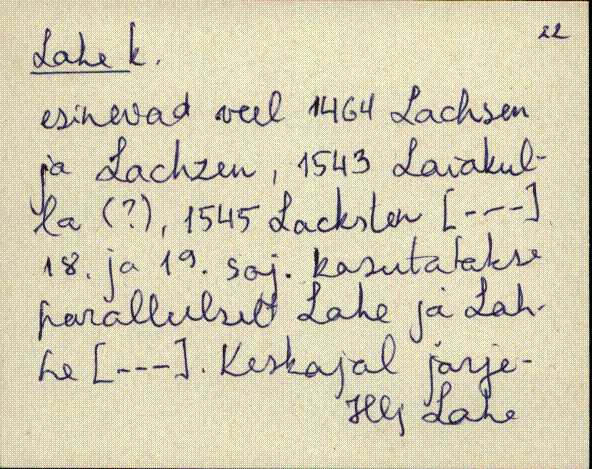 22
Lahe k.
esinevad veel 1464 Lachsen
ja Lachzen, 1543 Laiakul-
la (?), 1545 Lacksten [---]
18. ja 19. saj. kasutatakse
parallelselt Lahe ja Lah-
he [---]. Keskajal järje-
Hlj Lahe